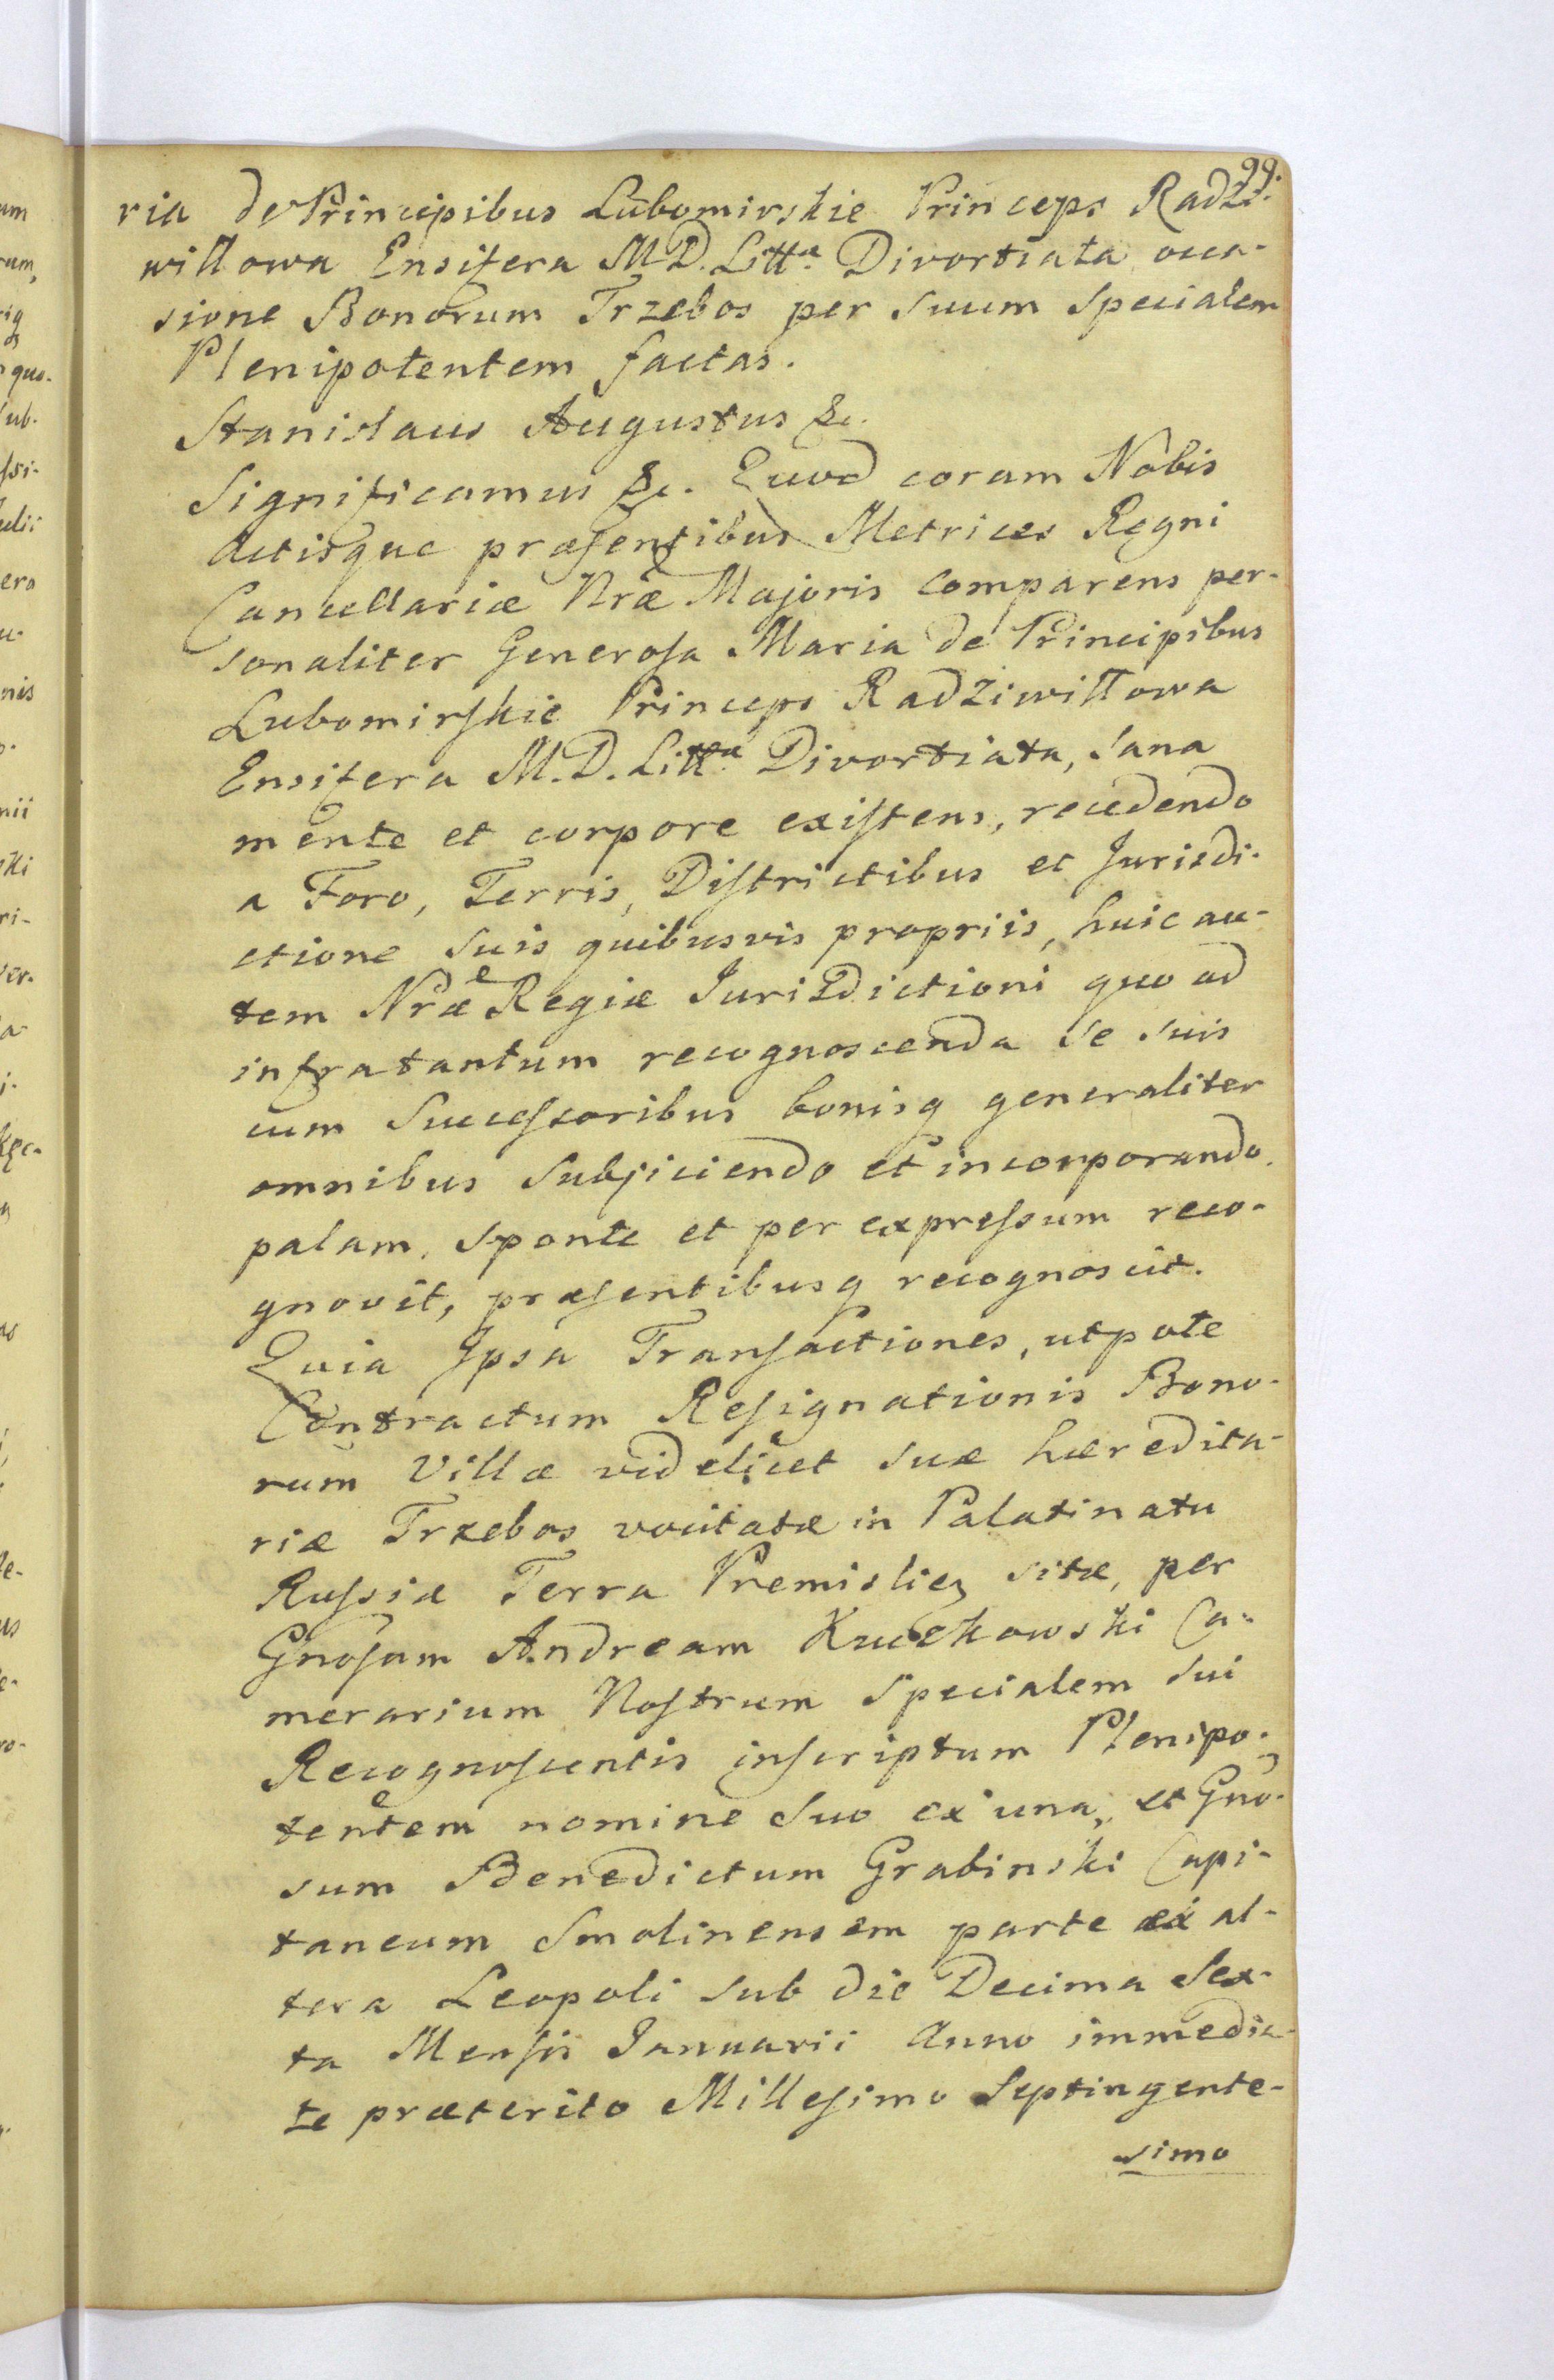 99.
ria de Principibus Lubomirskie Princeps Radzi-
wiłłowa Ensifera M.D. Litt.ae Divortiata occa-
sione Bonorum Trzebos per suum Specialem
Plenipotentem factas.
Stanislaus Augustus &c.
Significamus &c. Quod coram Nobis
Actisque præsentibus Metrices Regni
Cancellariæ Nræ Majoris Comparens per-
sonaliter Generosa Maria de Principibus
Lubomirskie Princeps Radziwiłłowa
Ensifera M.D. Litt.ae Divortiata, sana
mente et corpore existens, recedendo
a Foro, Terris, Districtibus et Jurisdi-
ctione suis quibusvis propriis, huic au-
tem Nræ Regiæ Jurisdictioni quo ad
infra tantum recognoscenda se suis
cum Successoribus bonisq generaliter
omnibus subjiciendo et incorporando,
palam, sponte et per expressum reco-
gnovit, præsentibusq recognoscit.
Quia Ipsa Transactiones, utpote
Contractum Resignationis Bono-
rum Villæ videlicet suæ hæredita-
riæ Trzebos vocitatæ in Palatinatu
Russiæ Terra Premislien sitæ, per
Gnosum Andream Kuczkowski Ca-
merarium Nostrum Specialem sui
Recognoscentis inscriptum Plenipo-
tentem nomine suo ex una, et Gno-
sum Benedictum Grabinski Capi-
taneum Smolinensem parte ex al-
tera Leopoli sub die Decima Sex-
ta Mensis Januarii Anno immedia-
te præterito Millesimo Septingente-
simo